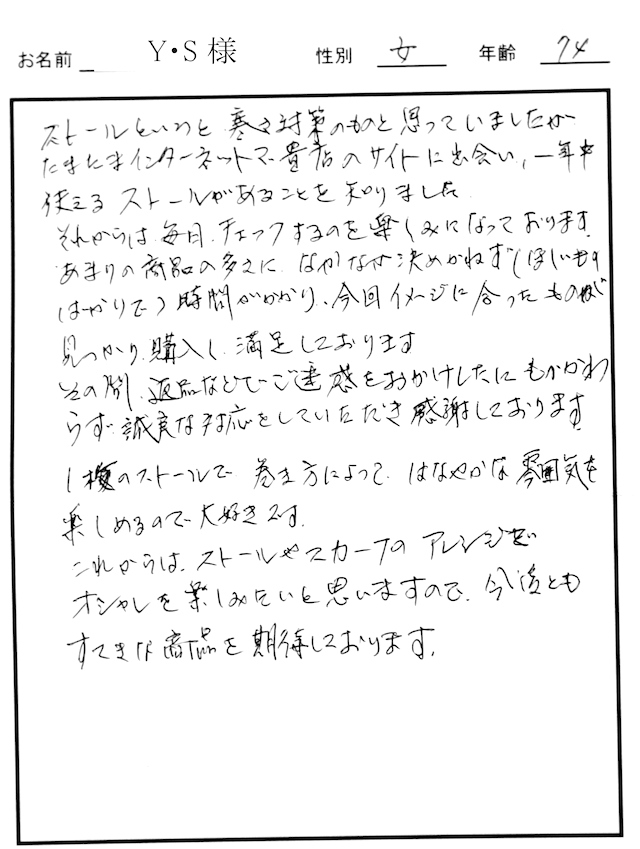 お名前 Y・S 様 性別 女 年齢 74
ストールというと 寒さ対策のものと思っていましたが
たまたまインターネットで 貴店のサイトに出会い、一年中
使える ストールがあることを 知りました
それからは、毎日、チェックするのを楽しみになっております。
あまりの商品の多さに、なかなか決めかねず(ほしいもの
ばかりで) 時間がかかり、今回イメージに合ったものが
見つかり、購入し、満足しております
その間、返品などでご迷惑をおかけしたにもかかわ
らず、誠実な対応をしていただき 感謝しております。
1枚のストールで 巻き方によって、はなやかな 雰囲気を
楽しめるので大好きです。
これからは、ストールやスカーフの アレンジで
オシャレを 楽しみたいと思いますので、今後とも
すてきな商品を 期待しております。